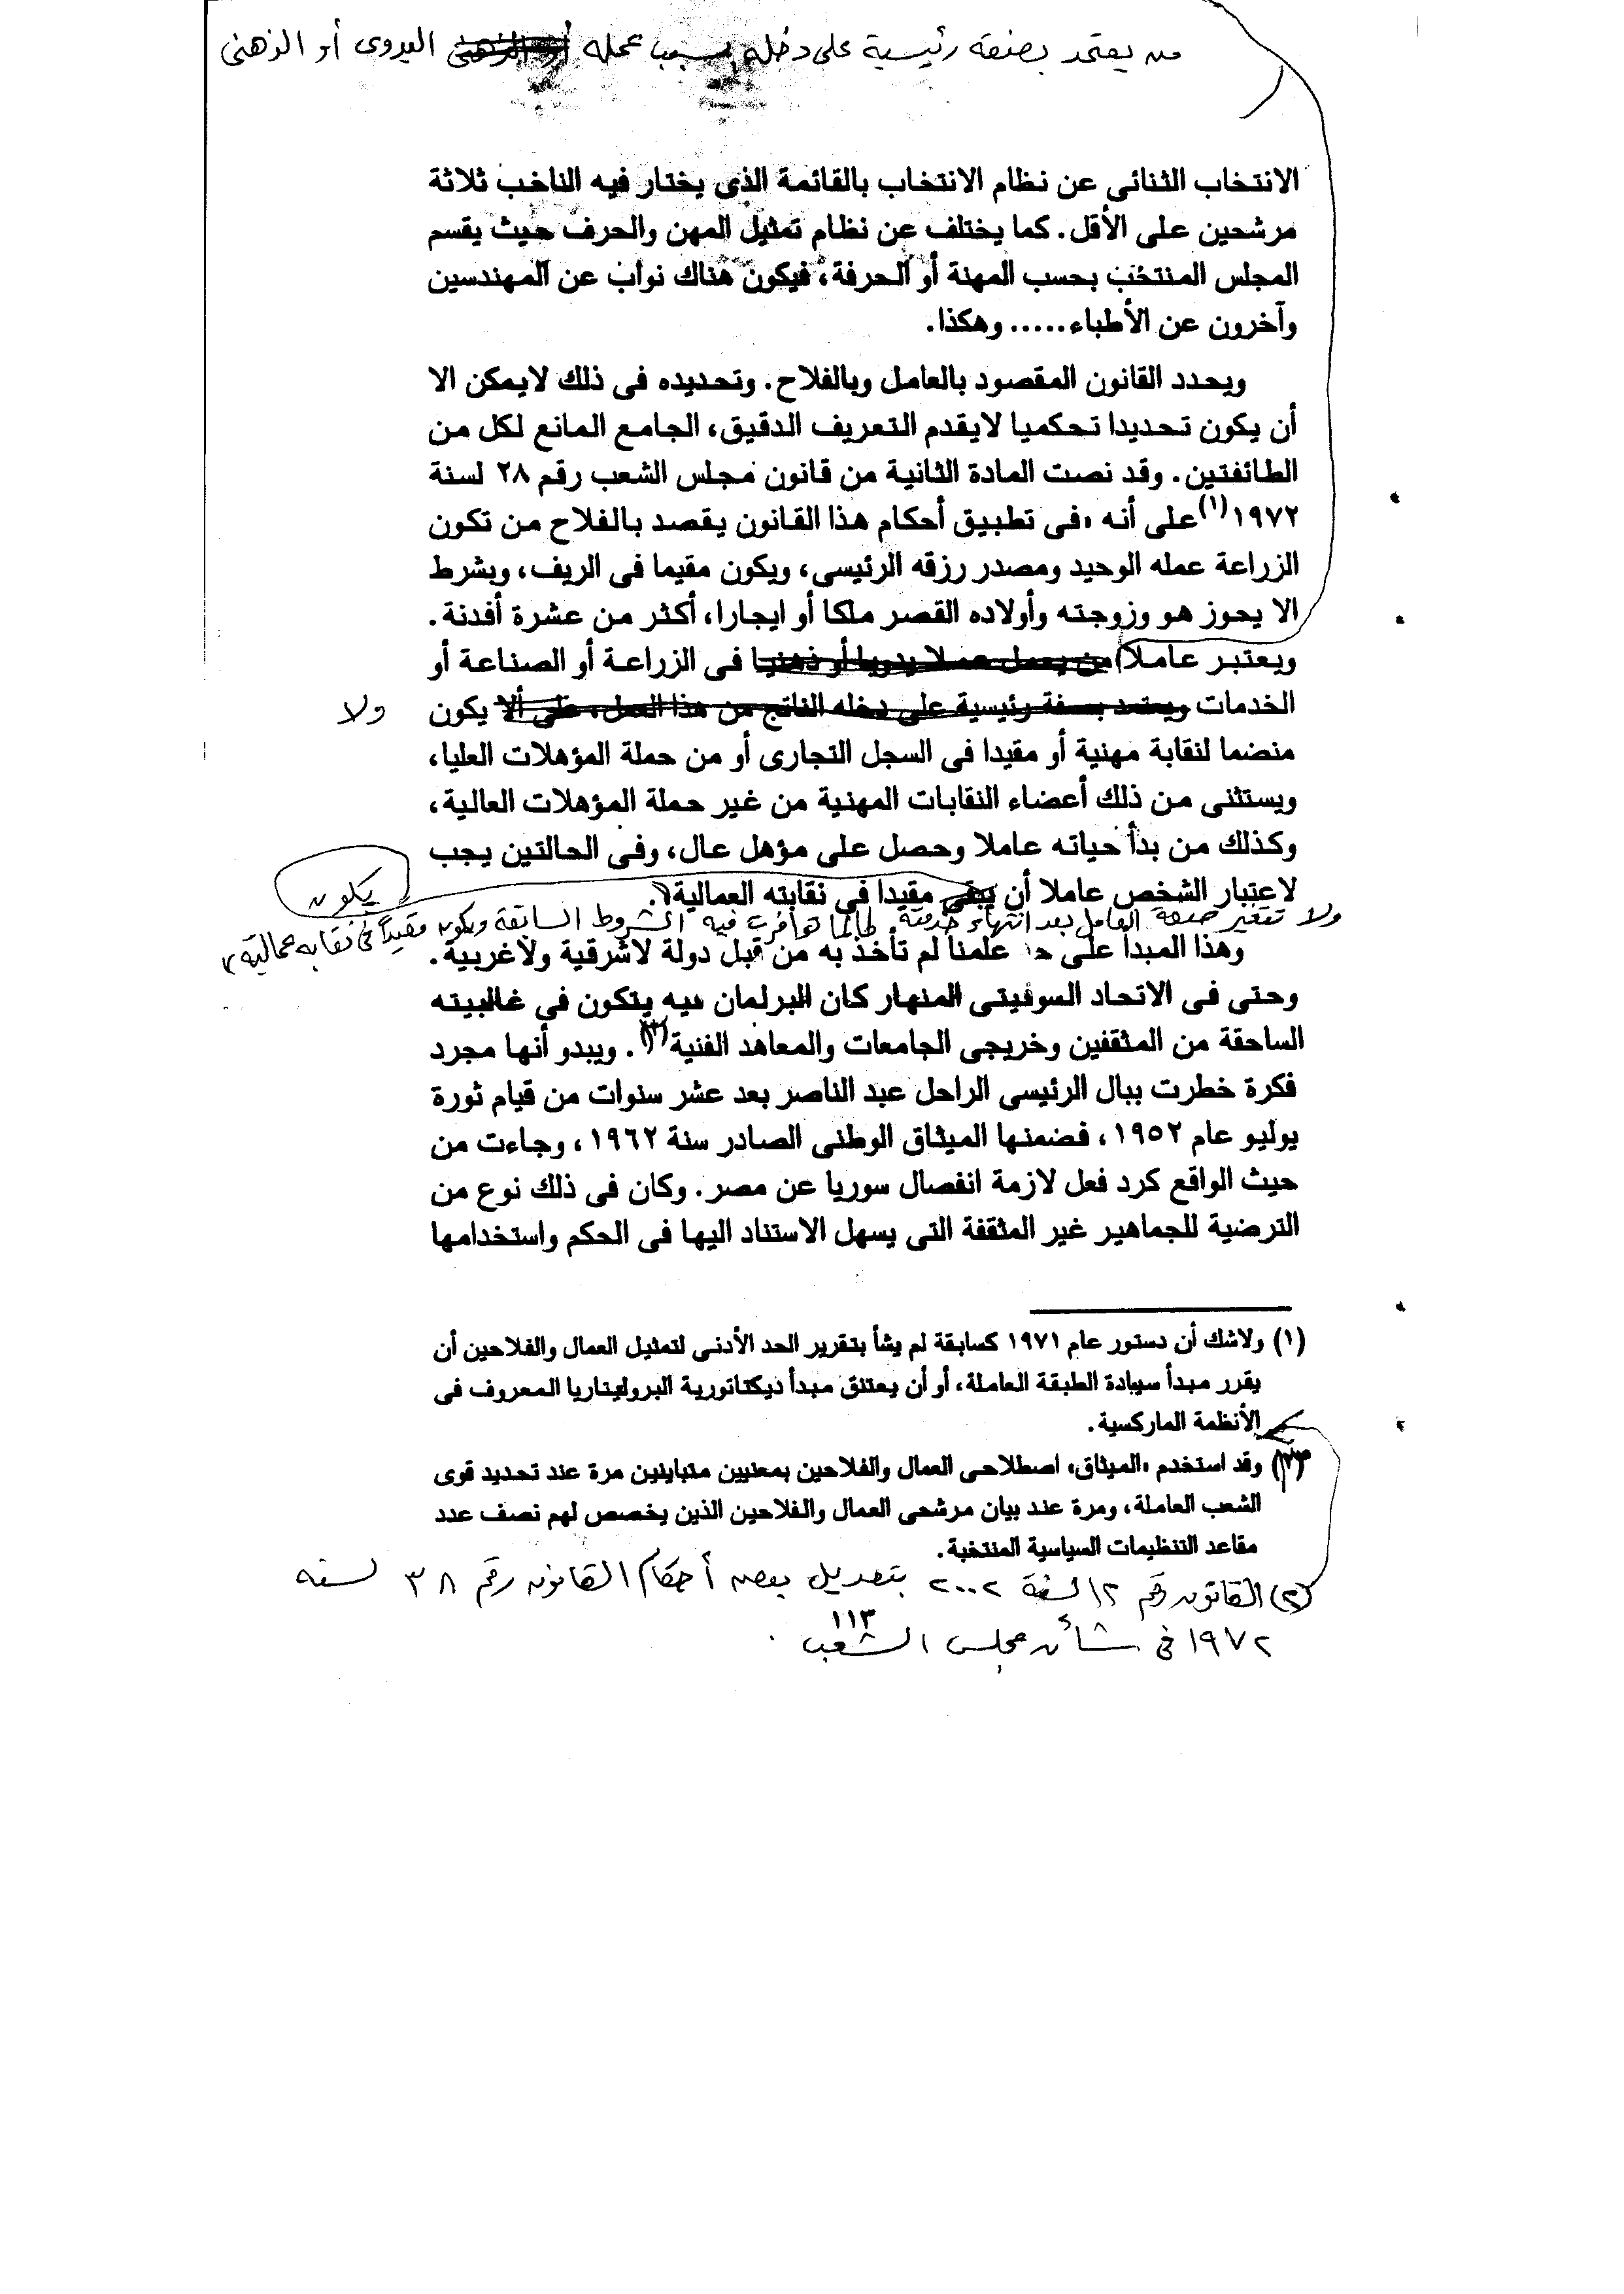 من يعتمد بصفة رئيسية على دخله بسبب عمله اليدوى أو الذهنى
الانتخاب الثنائى عن نظام الانتخاب بالقائمة الذى يختار فيه الناخب ثلاثة
مرشحين على الأقل. كما يختلف عن نظام تمثيل المهن والحرف حيث يقسم
المجلس المنتخب بحسب المهنة أو الحرفة، فيكون هناك نواب عن المهندسين
وآخرون عن الأطباء..... وهكذا.
ويحدد القانون المقصود بالعامل وبالفلاح. وتحديده فى ذلك لايمكن الا
أن يكون تحديدا تحكميا لايقدم التعريف الدقيق، الجامع المانع لكل من
الطائفتين. وقد نصت المادة الثانية من قانون مجلس الشعب رقم ٢٨ لسنة
١٩٧٢(١) على أنه «فى تطبيق أحكام هذا القانون يقصد بالفلاح من تكون
الزراعة عمله الوحيد ومصدر رزقه الرئيسى، ويكون مقيما فى الريف، وبشرط
الا يحوز هو وزوجته وأولاده القصر ملكا أو ايجارا، أكثر من عشرة أفدنة.
ويعتبر عاملا من يعمل عملا يدويا أو ذهنيا فى الزراعة أو الصناعة أو
الخدمات ويعتمد بصفة رئيسية على دخله الناتج من هذا العمل، على ألا يكون ولا
منضما لنقابة مهنية أو مقيدا فى السجل التجارى أو من حملة المؤهلات العليا،
ويستثنى من ذلك أعضاء النقابات المهنية من غير حملة المؤهلات العالية،
وكذلك من بدأ حياته عاملا وحصل على مؤهل عال، وفى الحالتين يجب
لاعتبار الشخص عاملا أن يبقى مقيدا فى نقابته العمالية». يكون
ولا تتغير صفة العامل بعد انتهاء خدمته طالما توافرت فيه الشروط السابقة ويكون مقيداً فى نقابة عمالية
وهذا المبدأ على علمنا لم تأخذ به من قبل دولة لاشرقية ولاغربية.
وحتى فى الاتحاد السوفيتى المنهار كان البرلمان فيه يتكون فى غالبيته
الساحقة من المثقفين وخريجى الجامعات والمعاهد الفنية(٣). ويبدو أنها مجرد
فكرة خطرت ببال الرئيسى الراحل عبد الناصر بعد عشر سنوات من قيام ثورة
يوليو عام ١٩٥٢، فضمنها الميثاق الوطنى الصادر سنة ١٩٦٢، وجاءت من
حيث الواقع كرد فعل لازمة انفصال سوريا عن مصر. وكان فى ذلك نوع من
الترضية للجماهير غير المثقفة التى يسهل الاستناد اليها فى الحكم واستخدامها
(١) ولاشك أن دستور عام ١٩٧١ كسابقة لم يشأ بتقرير الحد الأدنى لتمثيل العمال والفلاحين أن
يقرر مبدأ سيادة الطبقة العاملة، أو أن يعتنق مبدأ ديكتاتورية البروليتاريا المعروف فى
الأنظمة الماركسية.
(٣) وقد استخدم «الميثاق» اصطلاحى العمال والفلاحين بمعنيين متباينين مرة عند تحديد قوى
الشعب العاملة، ومرة عند بيان مرشحى العمال والفلاحين الذين يخصص لهم نصف عدد
مقاعد التنظيمات السياسية المنتخبة.
(٢) القانون رقم ١٢ لسنة ٢٠٠٢ بتعديل بعض أحكام القانون رقم ٣٨ لسنة
١١٣
١٩٧٢ فى شأن مجلس الشعب.